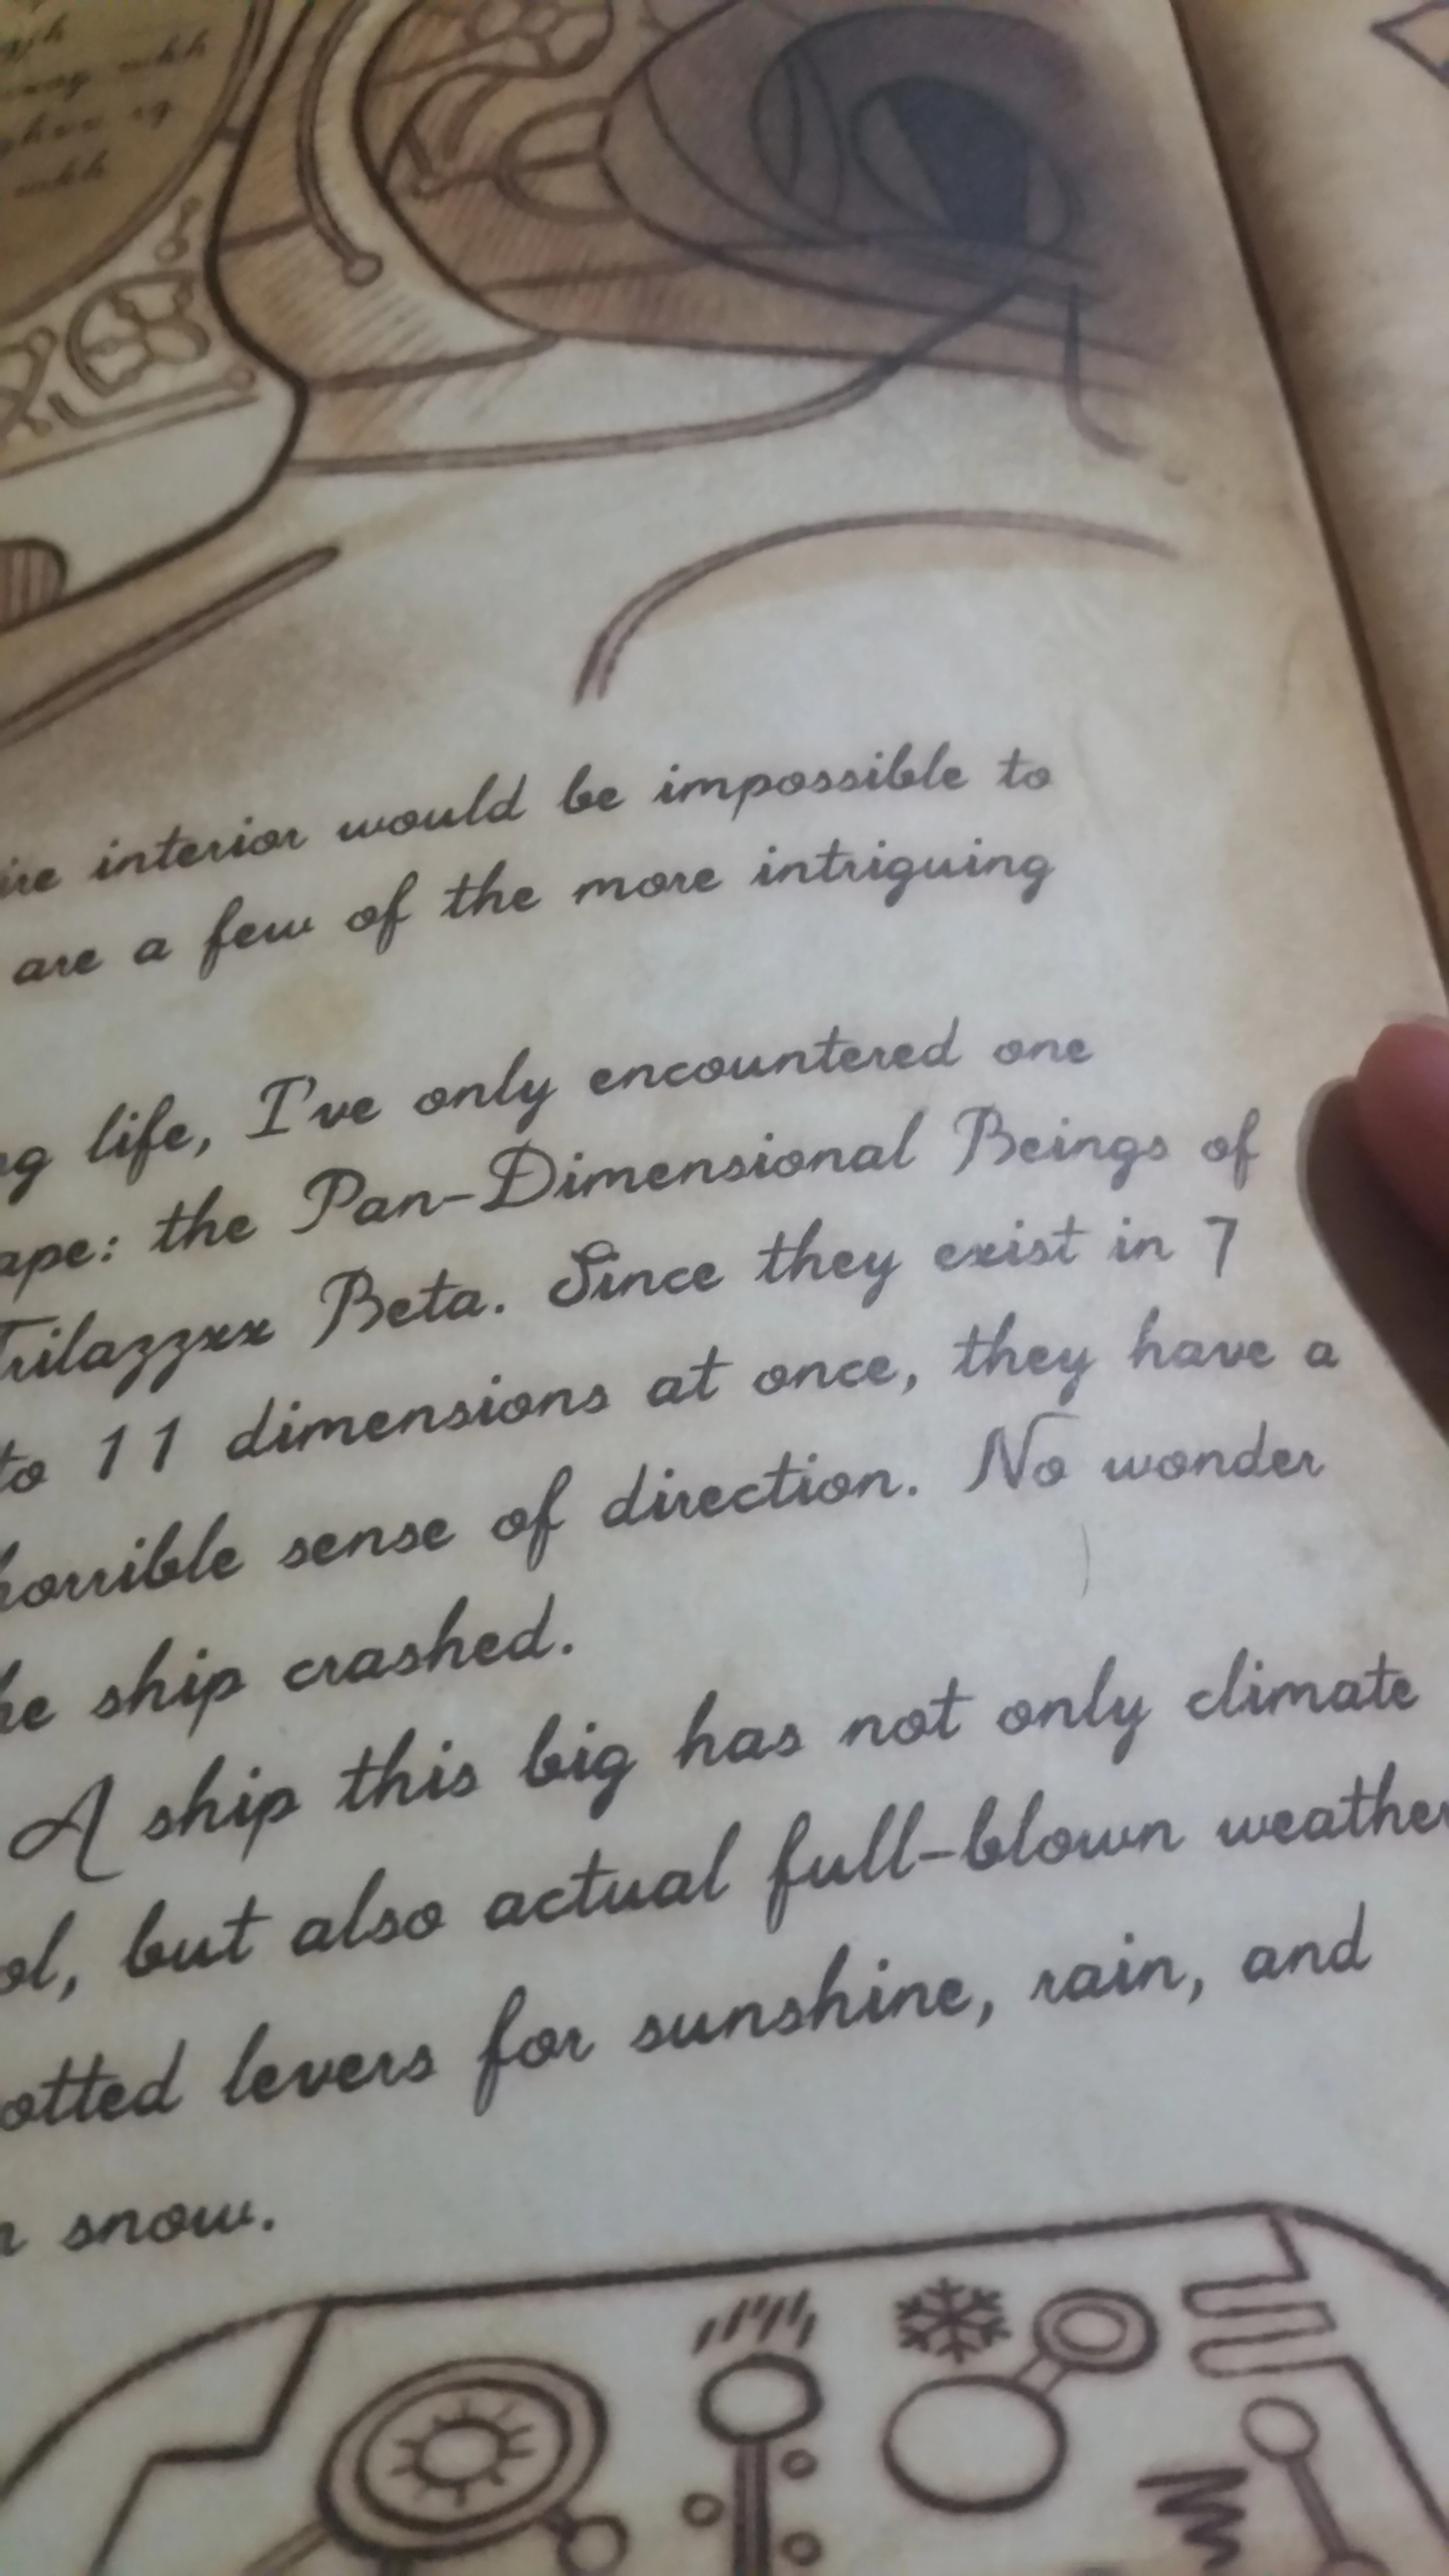 interior would be impossible to
are a few of the more intriguing
life, I've only encountered one
ape: the Pan-Dimensional Beings of
Trilazzxx Beta. Since they exist in 7
to 11 dimensions at once, they have a
horrible sense of direction. No wonder
he ship crashed.
A ship this big has not only climate
ol, but also actual full-blown weather
otted levers for sunshine, rain, and
snow.